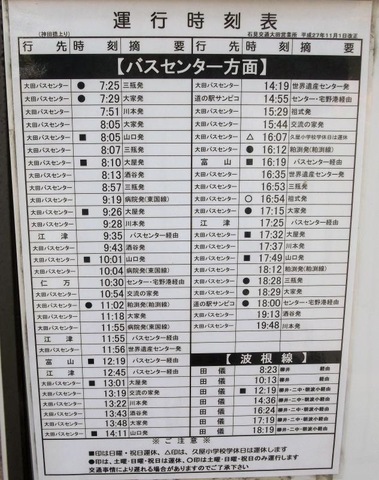 運行時刻表
(神田橋上り)
石見交通大田営業所 平成27年11月1日改正
行先 時刻 摘要 行先 時刻 摘要
【バスセンター方面】
大田バスセンター ● 7:25 三瓶発
大田バスセンター ● 7:29 大家発
大田バスセンター 7:51 川本発
大田バスセンター ■ 8:05 山口発
大田バスセンター 8:07 三瓶発
大田バスセンター ■ 8:10 大屋発
大田バスセンター 8:13 酒谷発
大田バスセンター 8:57 三瓶発
大田バスセンター 9:19 病院発(東国線)
大田バスセンター ■ 9:26 大屋発
大田バスセンター 9:28 川本発
江津 9:35 バスセンター経由
大田バスセンター 9:43 酒谷発
大田バスセンター ■ 10:01 山口発
大田バスセンター 10:04 病院発(東国線)
仁万 10:30 センター・宅野港経由
大田バスセンター 10:54 交流の家発
大田バスセンター ● 11:02 粕渕発(粕渕線)
大田バスセンター 11:18 大家発
大田バスセンター 11:55 病院発(東国線)
江津 11:55 バスセンター経由
大田バスセンター 11:56 世界遺産センター発
富山 ■ 12:19 バスセンター経由
江津 12:45 バスセンター経由
大田バスセンター ■ 13:01 大屋発
大田バスセンター 13:19 交流の家発
大田バスセンター 13:22 川本発
大田バスセンター 13:43 酒谷発
大田バスセンター 13:48 大家発
大田バスセンター ■ 14:11 山口発
大田バスセンター 14:19 世界遺産センター発
道の駅サンピコ 14:55 センター・宅野港経由
大田バスセンター 15:29 祖式発
大田バスセンター 15:44 交流の家発
大田バスセンター △ 16:07 久屋小学校学休日は運休
大田バスセンター ● 16:12 粕渕発(粕渕線)
富山 ■ 16:19 バスセンター経由
大田バスセンター 16:35 世界遺産センター発
大田バスセンター 16:53 三瓶発
大田バスセンター ○ 16:54 祖式発
大田バスセンター ● 17:15 大家発
江津 17:25 バスセンター経由
大田バスセンター ■ 17:32 大屋発
大田バスセンター 17:37 川本発
大田バスセンター ■ 17:49 山口発
大田バスセンター 18:12 粕渕発(粕渕線)
大田バスセンター ● 18:28 三瓶発
大田バスセンター ● 18:29 大家発
道の駅サンピコ ● 18:00 センター・宅野港経由
大田バスセンター 19:13 酒谷発
大田バスセンター 19:48 川本発
【波根線】
田儀 8:23 柳井 経由
田儀 10:13 柳井 経由
田儀 ■ 12:19 柳井・二中・朝波小経由
田儀 14:36 柳井・二中・朝波小経由
田儀 16:24 柳井・二中・朝波小経由
田儀 17:19 柳井・二中・朝波小経由
田儀 18:19 柳井・二中・朝波小経由
※ ご注意 ※
■印は日曜・祝日運休、△印は、久屋小学校学休日は運休します
●印は、土曜・日曜・祝日は運休、○印は土曜・日曜・祝日のみ運行します
交通事情により遅れる場合がありますのでご了承下さい